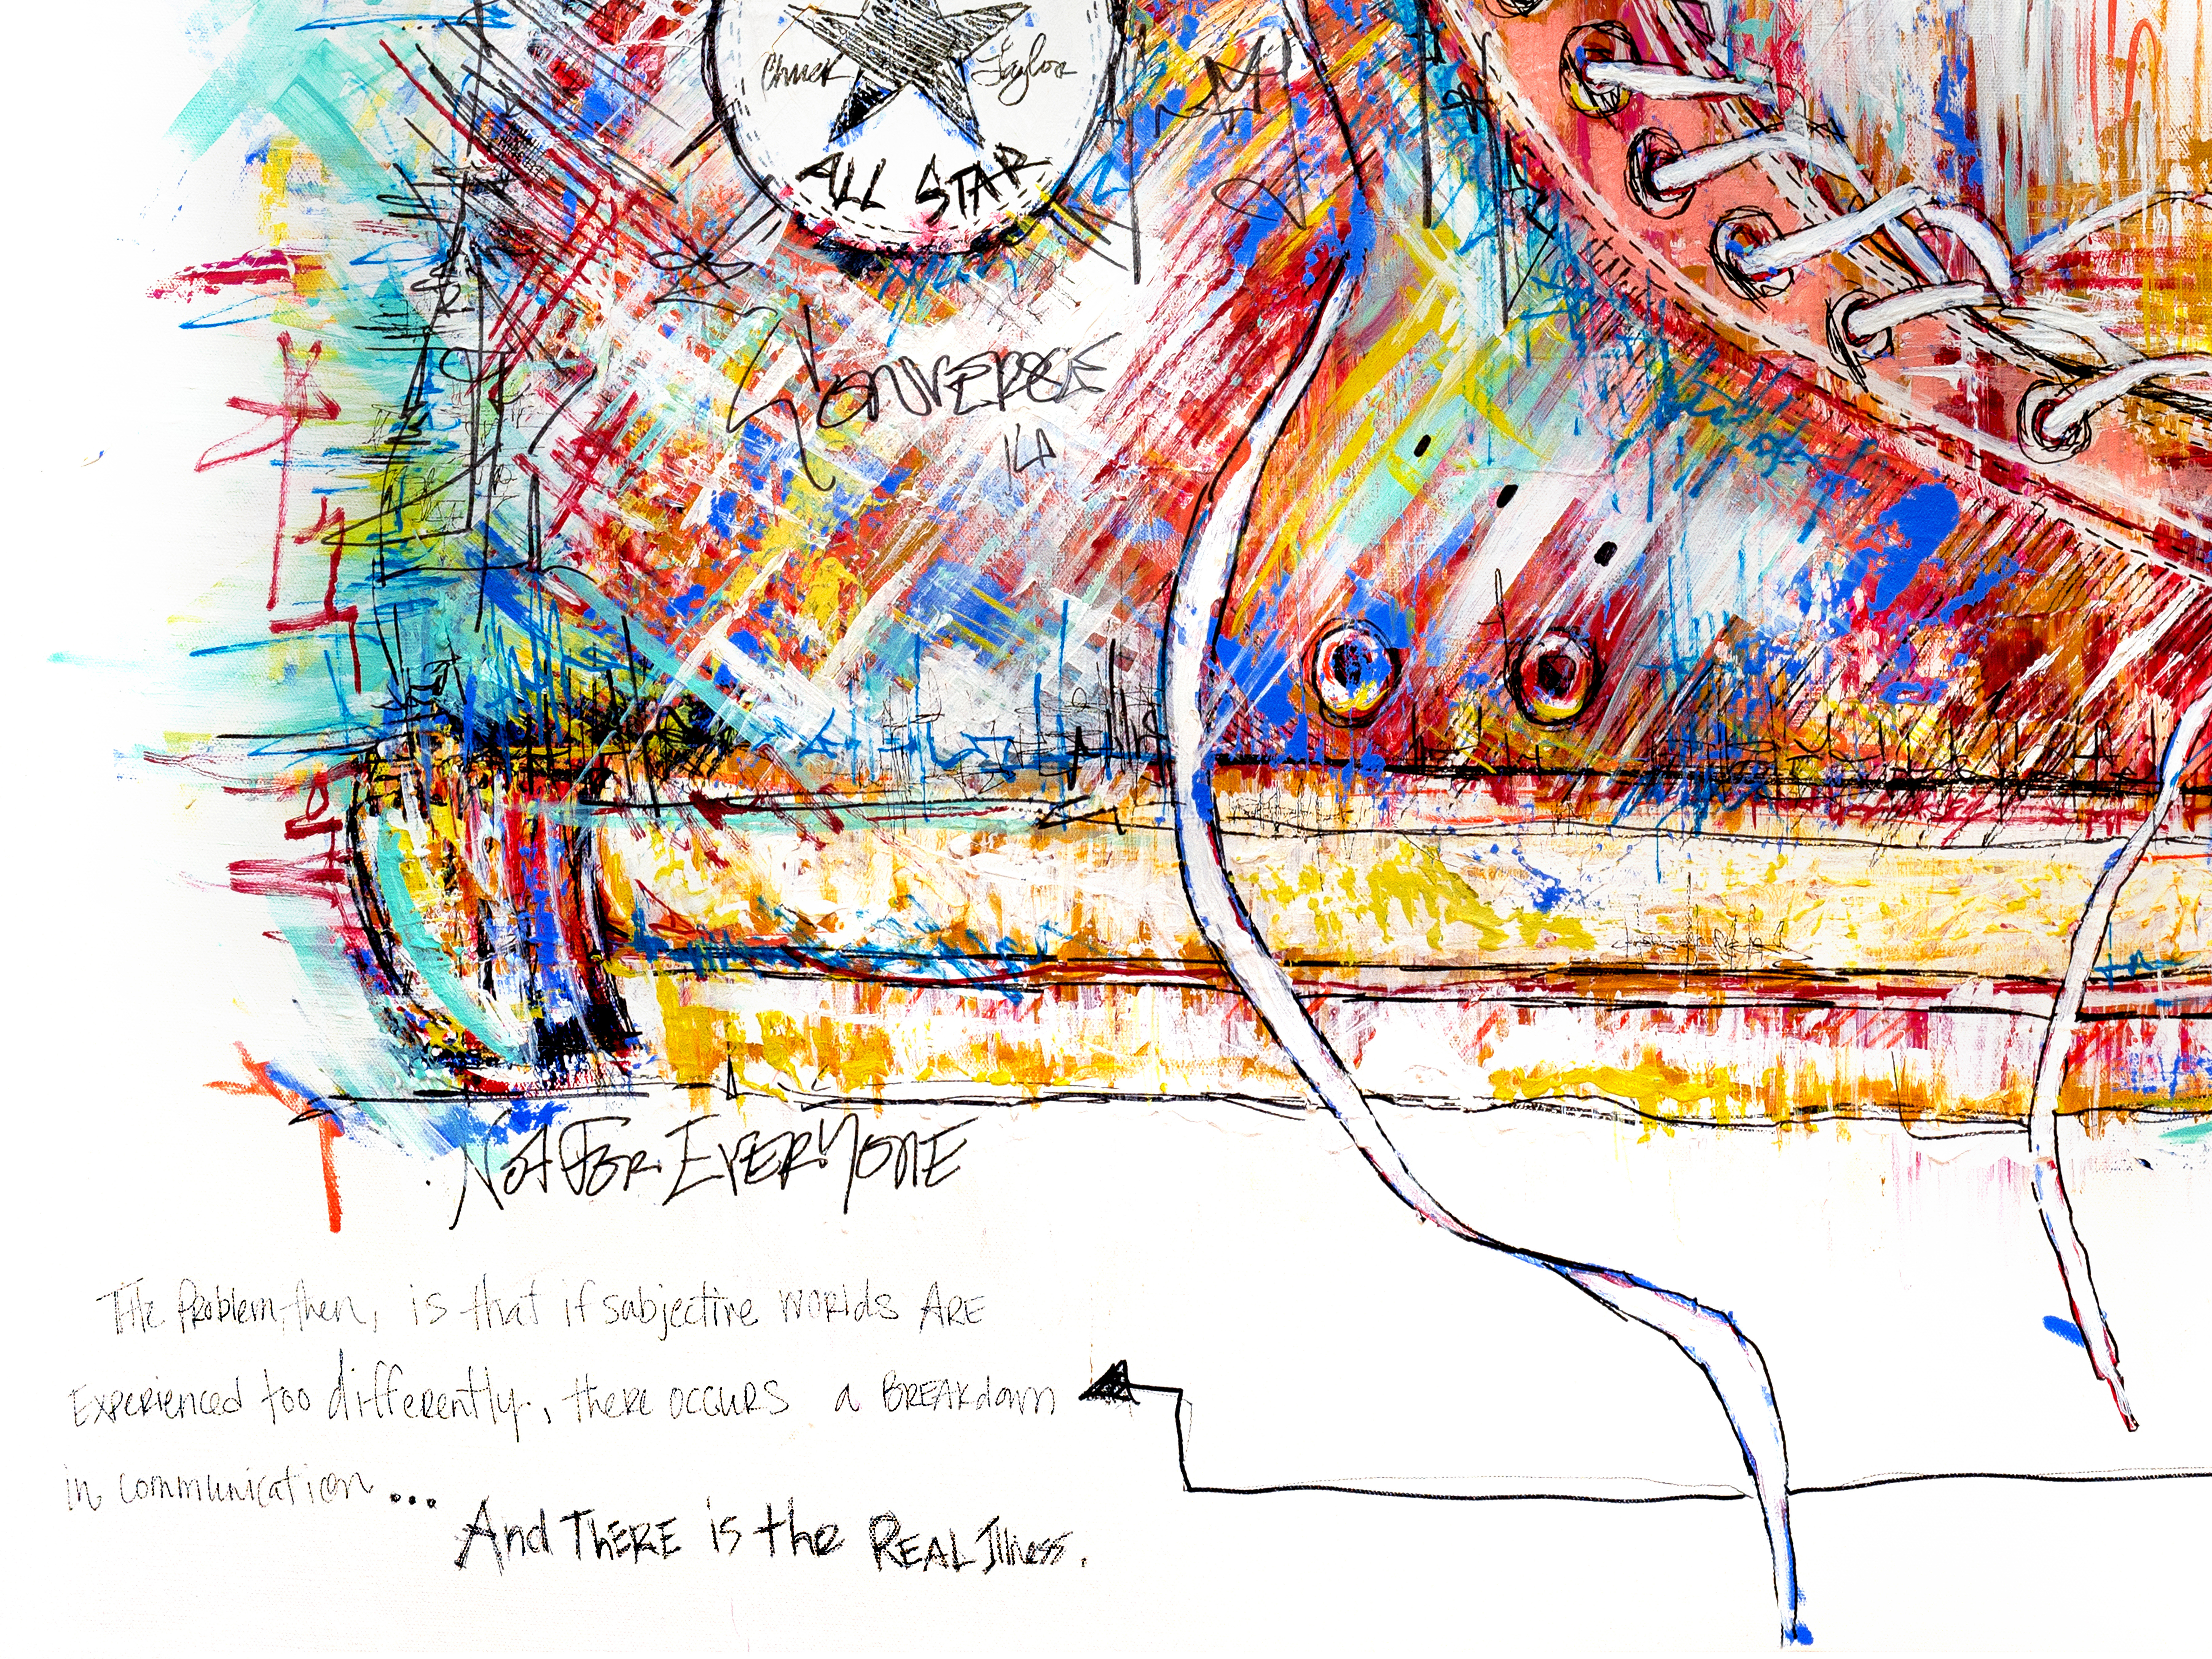 Chuck Taylor
ALL STAR
CONVERSE
NOT FOR EVERYONE
THE Problem, then, is that if subjective WORLDS ARE
EXPERIENCED too differently., there OCCURS a BREAKdown
in communication...
And THERE is the REAL Illness.